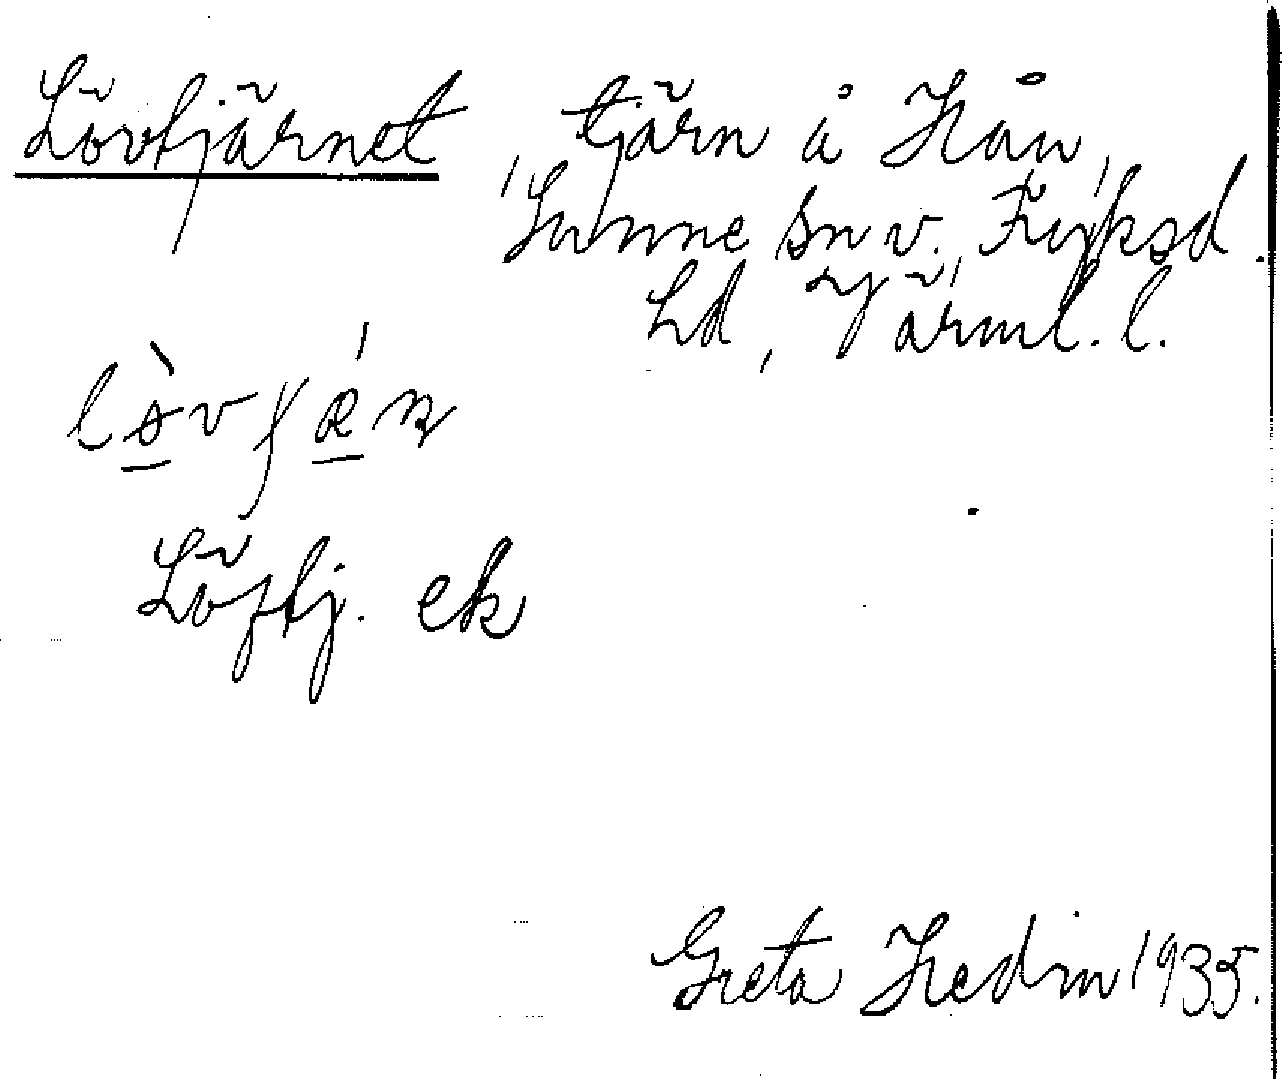 Lövtjärnet, tjärn å Hån,
Sunne sn v. Fryksd.
hd, Värml. l.
Löftj. ek
Greta Hedin 1935.